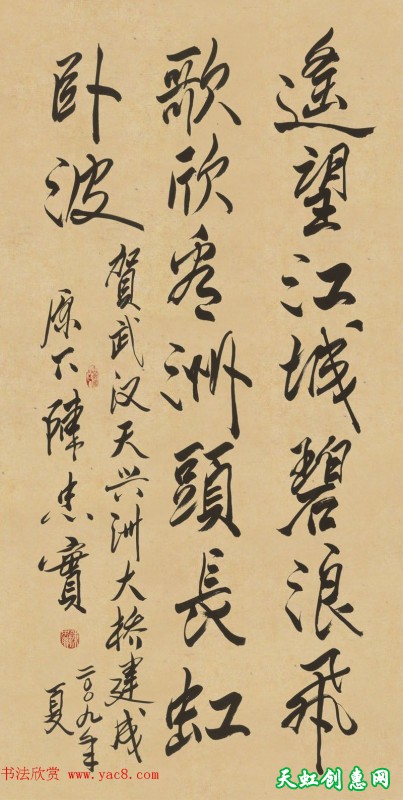 遙望江城碧浪飛
歌欣看洲頭長虹
卧波
賀武汉天兴洲大橋建成
二〇〇九年
夏
原下陳忠實
书法欣赏
www.yac8.com
天虹创惠网